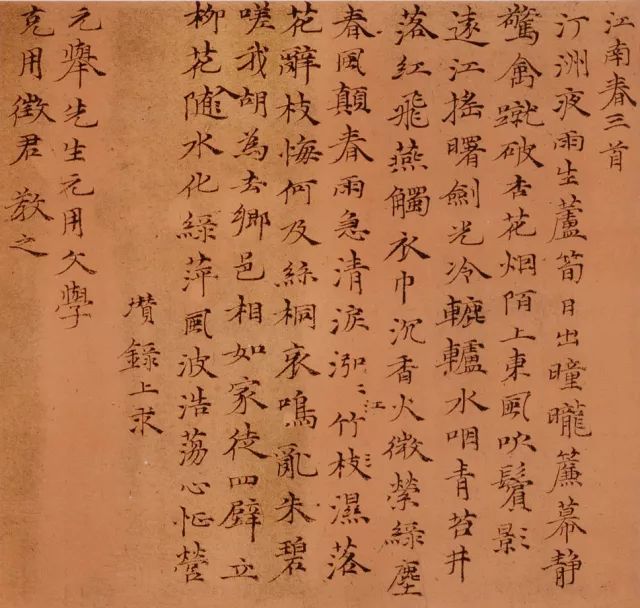 江南春三首
汀洲夜雨生蘆筍日出曈曨簾幕静
驚禽蹴破杏花烟陌上東風吹鬢影
遠江搖曙劍光冷轆轤水咽青苔井
落紅飛燕觸衣巾沉香火微縈緑塵
春風顛春雨急清淚泓泓江竹枝濕落
花辭枝悔何及絲桐哀鳴亂朱碧
嗟我胡為去鄉邑相如家徒四壁立
柳花隨水化緑萍風波浩蕩心怔營
瓚錄上求
元舉先生元用文學
克用徵君教之